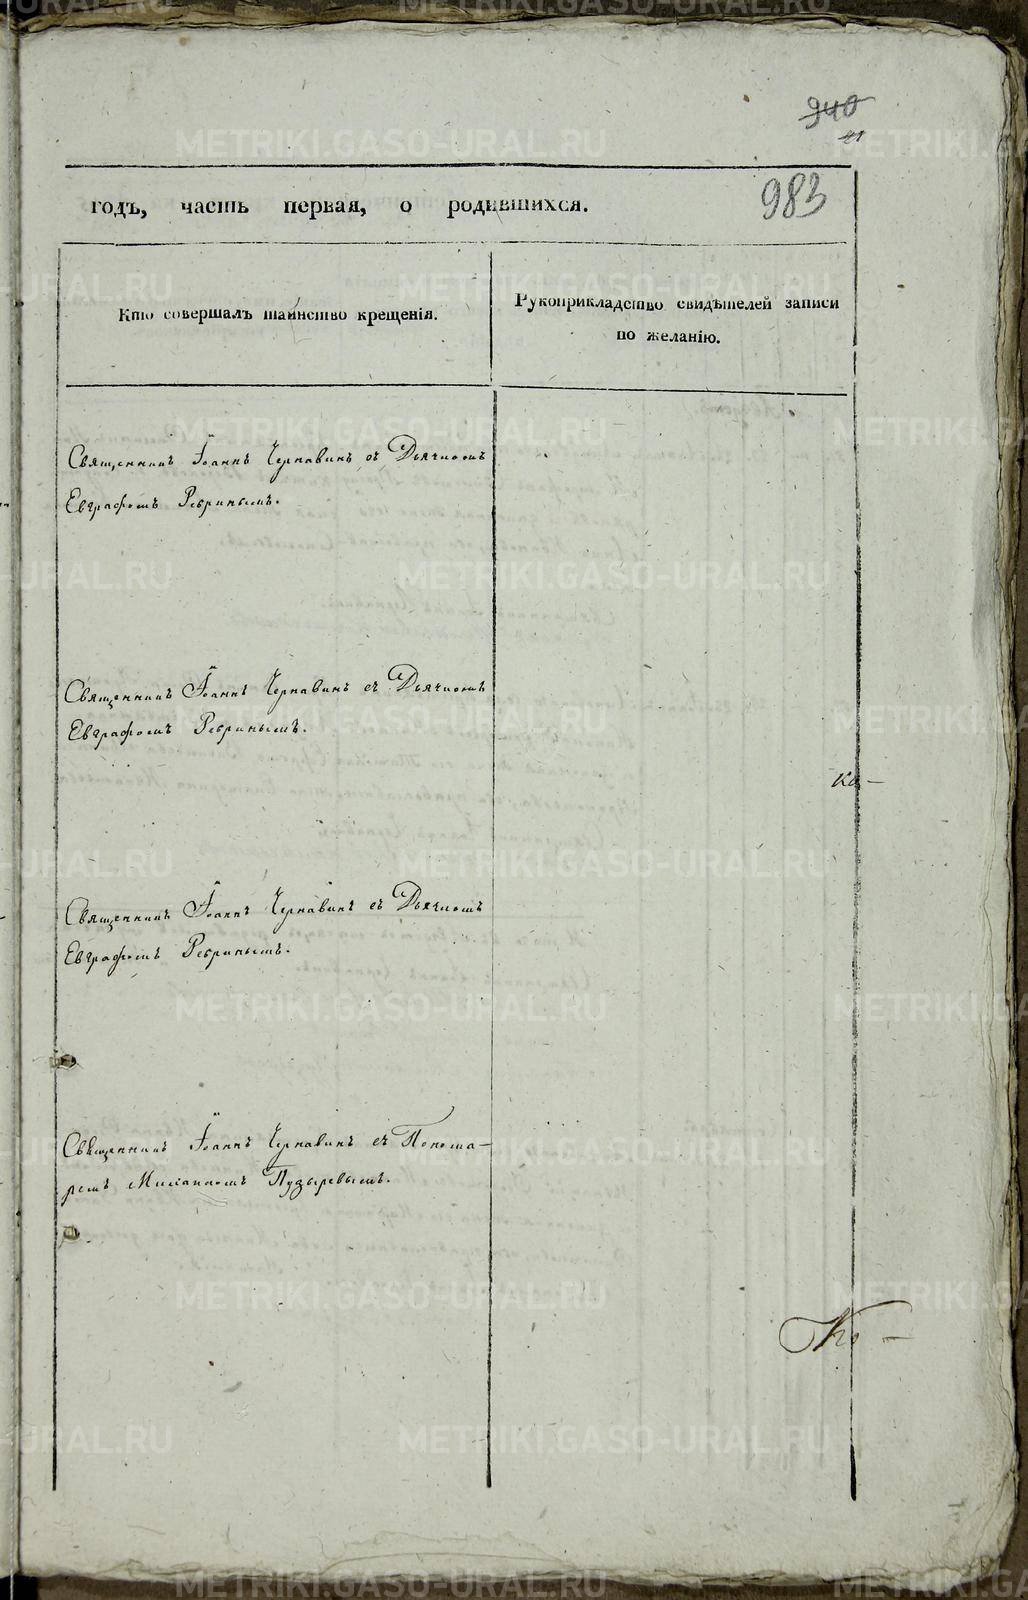 940
41
983
годъ, часть первая, о родившихся.
Кто совершалъ таинство крещенія.
Рукоприкладство свидѣтелей записи
по желанію.
Священникъ Іоаннъ Чернавинъ съ Дьячкомъ
Евграфомъ Ребринымъ.
Священникъ Іоаннъ Чернавинъ съ Дьячкомъ
Евграфомъ Ребринымъ.
Священникъ Іоаннъ Чернавинъ съ Дьячкомъ
Евграфомъ Ребринымъ.
Священникъ Іоаннъ Чернавинъ съ Понома-
ремъ Пузыревымъ.
METRIKI.GASO-URAL.RU